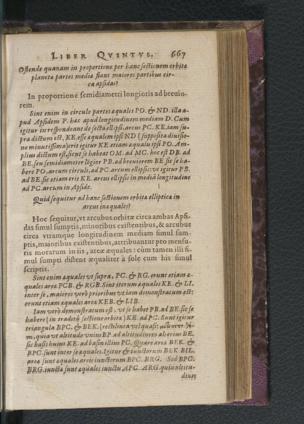 LIBER QVINTVS. 667
Ostende quanam in proportione per hanc sectionem orbitæ
planetæ partes mediæ fiant maiores partibus cir-
ca apsidas?
In proportione semidiametri longioris ad breuio-
rem.
Sint enim in circulo partes æquales PO. & ND. illa a-
pud Apsidem P. hæc apud longitudinem mediam D. Cum
igitur
PC. KE. iam su-
pra dictum est, KE. esse æqualem ipsi ND
ne minutissima) erit igitur KE etiam æqualis ipsi PO. Am-
plius dictum est, sicut se habent OM. ad MC. hoc est DB. ad
BE. seu semidiameter lõgior PB. ad breuiorem BE sic se ha-
bere PO. arcum circuli, ad PC. arcum ellipsis: vt igitur PB.
ad BE. sic etiam erit KE. arcus ellipsis in media longitudine
ad PC. arcum in Apside.
Quid sequitur ad hanc sectionem orbitæ ellipticæ in
arcus inæquales?
Hoc sequitur, vt arcubus orbitæ circa ambas Apsi-
das simul sumptis, minoribus existentibus, & arcubus
circa vtramque longitudinem mediam simul sum-
ptis, maioribus existentibus, attribuantur pro mensu-
ris morarum in iis, areæ æquales: cùm tamen illi si-
mul sumpti distent æqualiter à sole cum his simul
scriptis.
Sint enim æquales vt supra, PC. & RG. erunt etiam æ-
quales areæ PCB. & RGB. Sint iterum æquales KE. & LI.
inter se, maiores verò prioribus vt iam demonstratum est:
erunt etiam æquales areæ KEB. & LIB.
Iam verò demonstratum est, vt se habet PB. ad BE. sic se
habere (in tradita sectione orbitæ) KE. ad PC. Sunt igitur
triangula BPC. & BEK. (rectilinea vel quasi:
quia vt altitudo vnius BP. ad altitudinem alterius BE.
sic basis huius KE. ad basin illius PC. Quare area BEK. &
BPC. sunt inter se æquales. Igitur & iunctorum BEK BIL.
areæ sunt æquales areis iunctorum BPC. BRG. Sed BPC.
BRG. iuncta sunt æqualia iunctis APC. ARG. quia